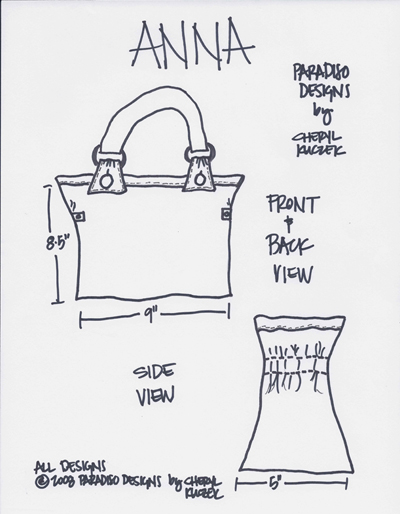 ANNA
PARADISO
DESIGNS
by
CHERYL
KUCZEK
FRONT
+
BACK
VIEW
8.5"
9"
SIDE
VIEW
5"
ALL DESIGNS
© 2008 PARADISO DESIGNS by CHERYL
KUCZEK